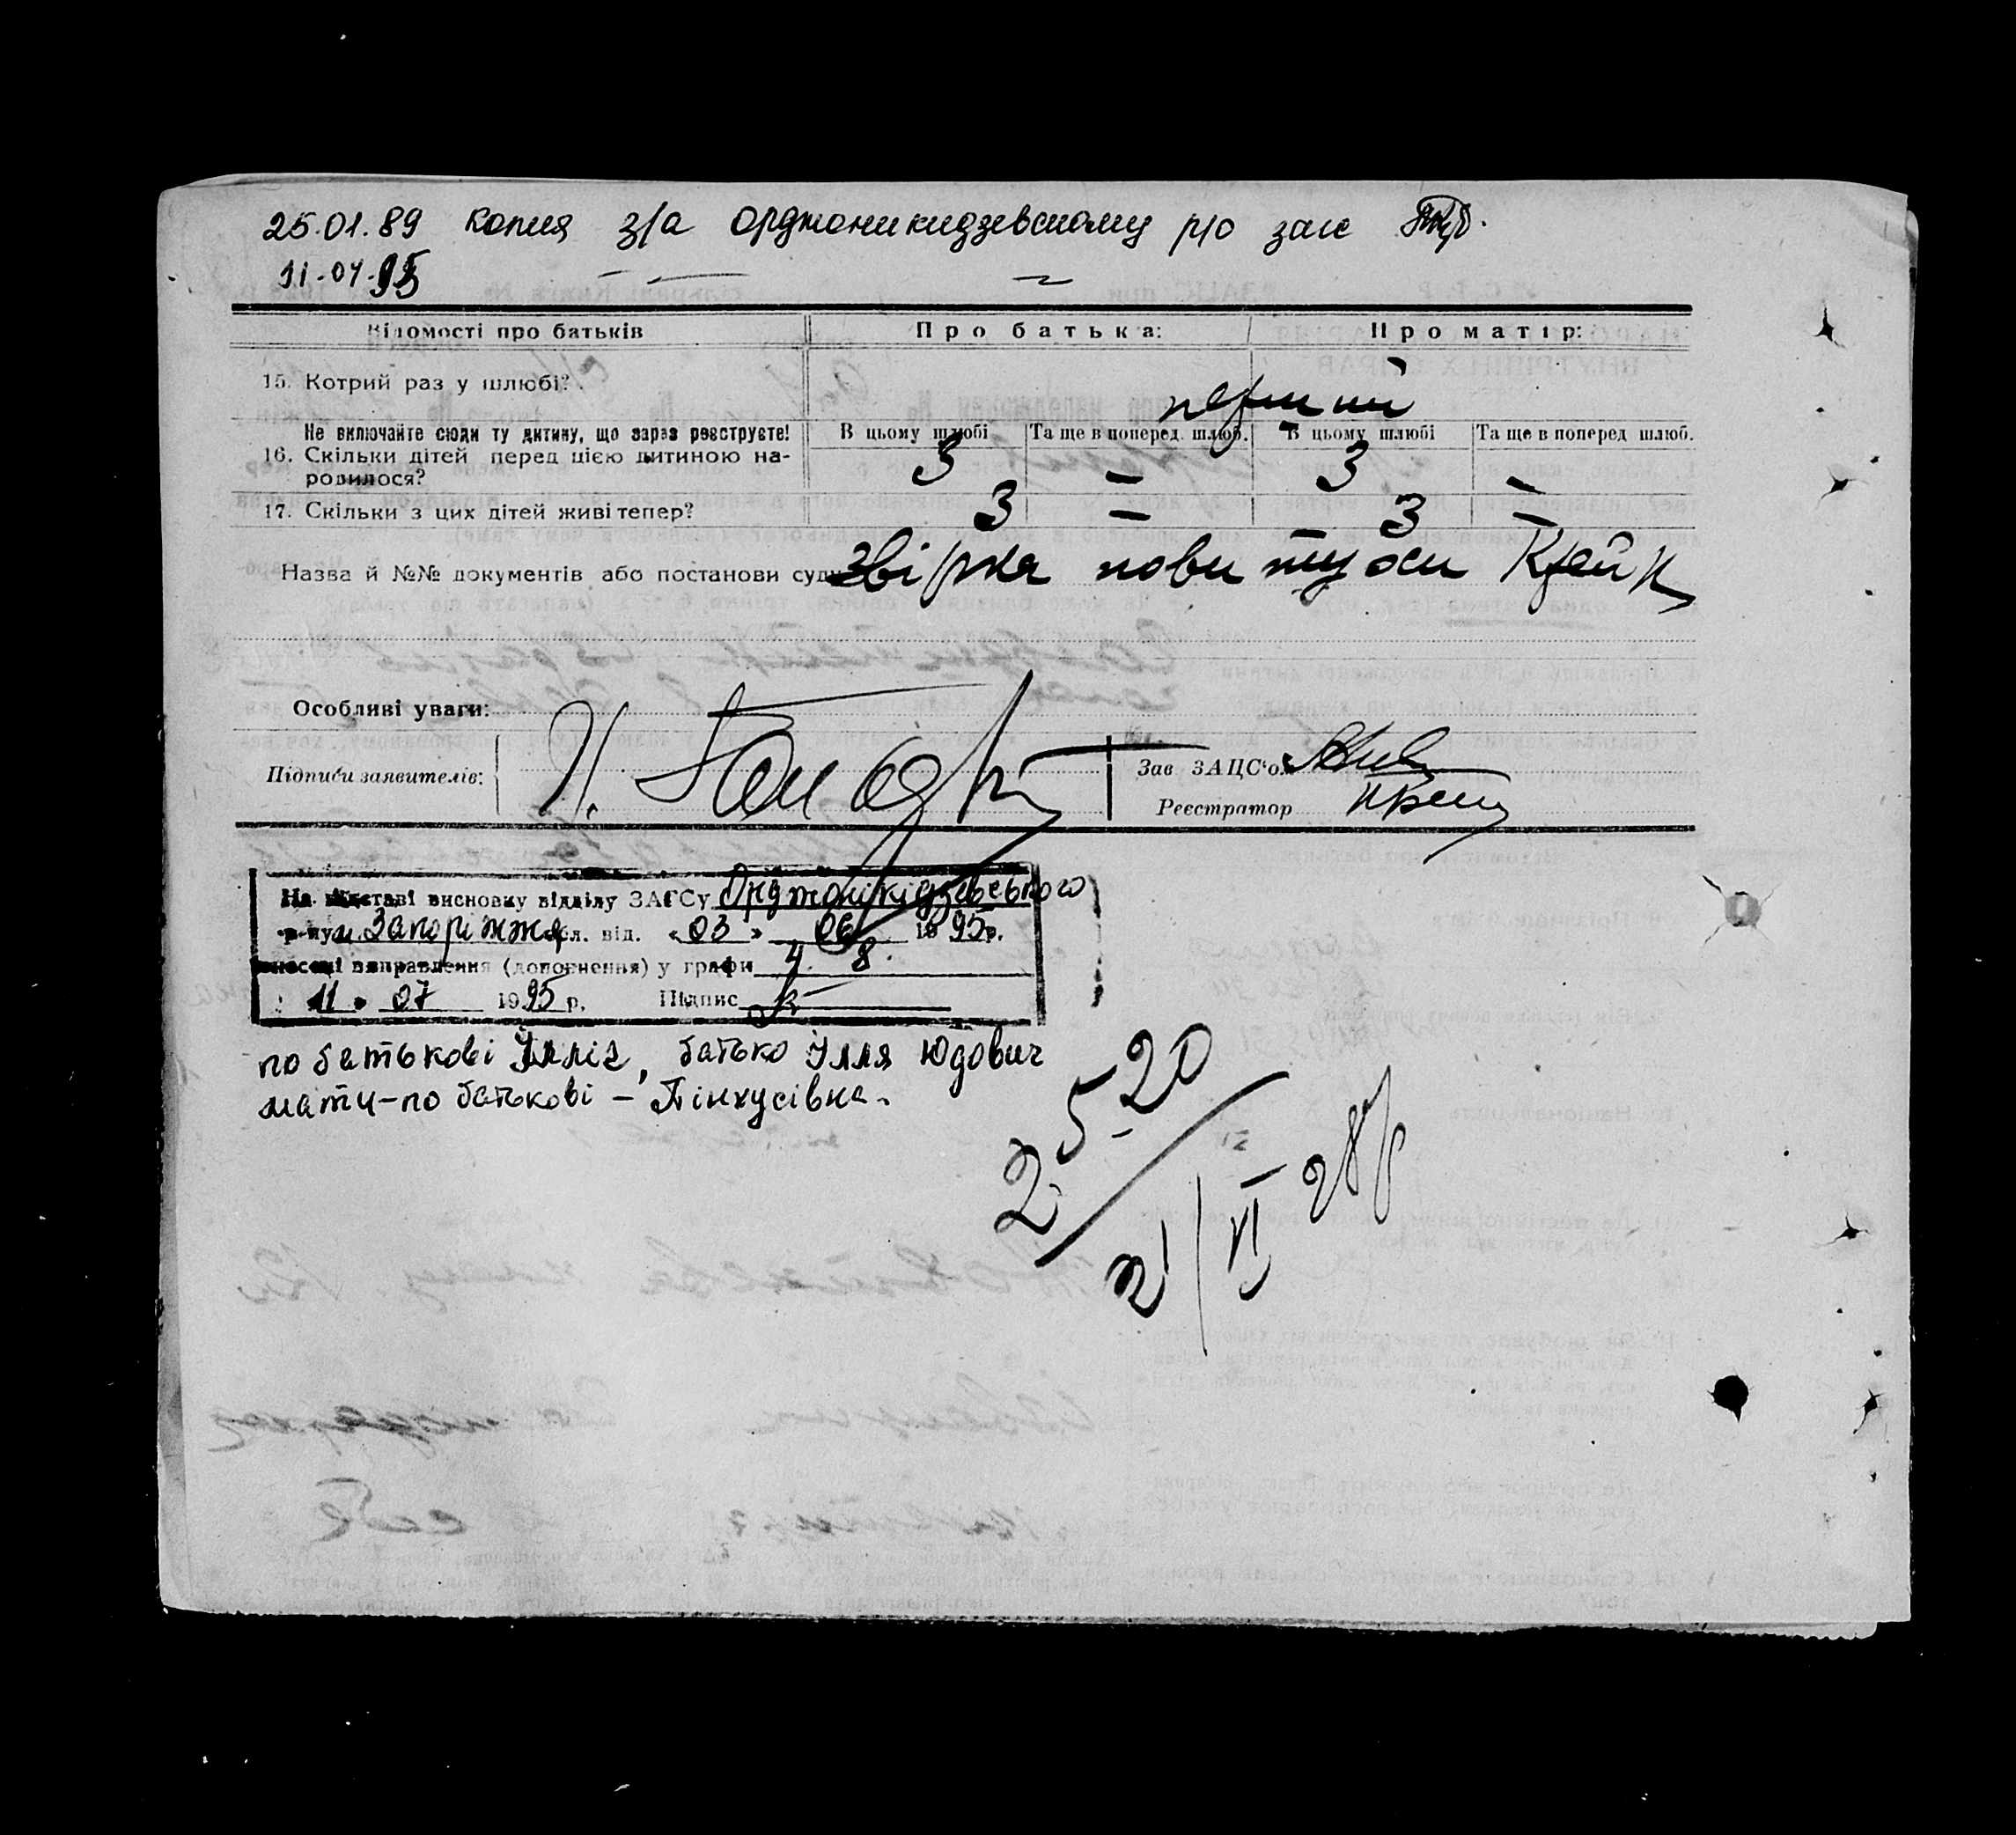 25.01.89 копия з/а орджоникидзевскому р/о загс
11.07.95
Відомості про батьків Про батька: Про матір:
15. Котрий раз у шлюбі? перший
Не включайте сюди ту дитину, що зараз реєструєте! В цьому шлюбі Та ще в поперед. шлюб. В цьому шлюбі Та ще в поперед шлюб.
16. Скільки дітей перед цією дитиною на- 3 — 3 —
родилося?
17. Скільки з цих дітей живі тепер? 3 — 3 —
Назва й №№ документів або постанови суду Звірка
Особливі уваги:
Підписи заявителів:
Зав ЗАЦС'ом
Реєстратор
На підставі висновку відділу ЗАГСу Орджонікідзевського
р-ну м Запоріжжя обл. від. «03» 06 1995р.
внесені виправлення (доповнення) у графи 4. 8.
11 » 07 1995 р. Підпис
по батькові Ілліч, батько Ілля Юдович
мати-по батькові - Пінхусівна.
2 5-20
21/VI 28р